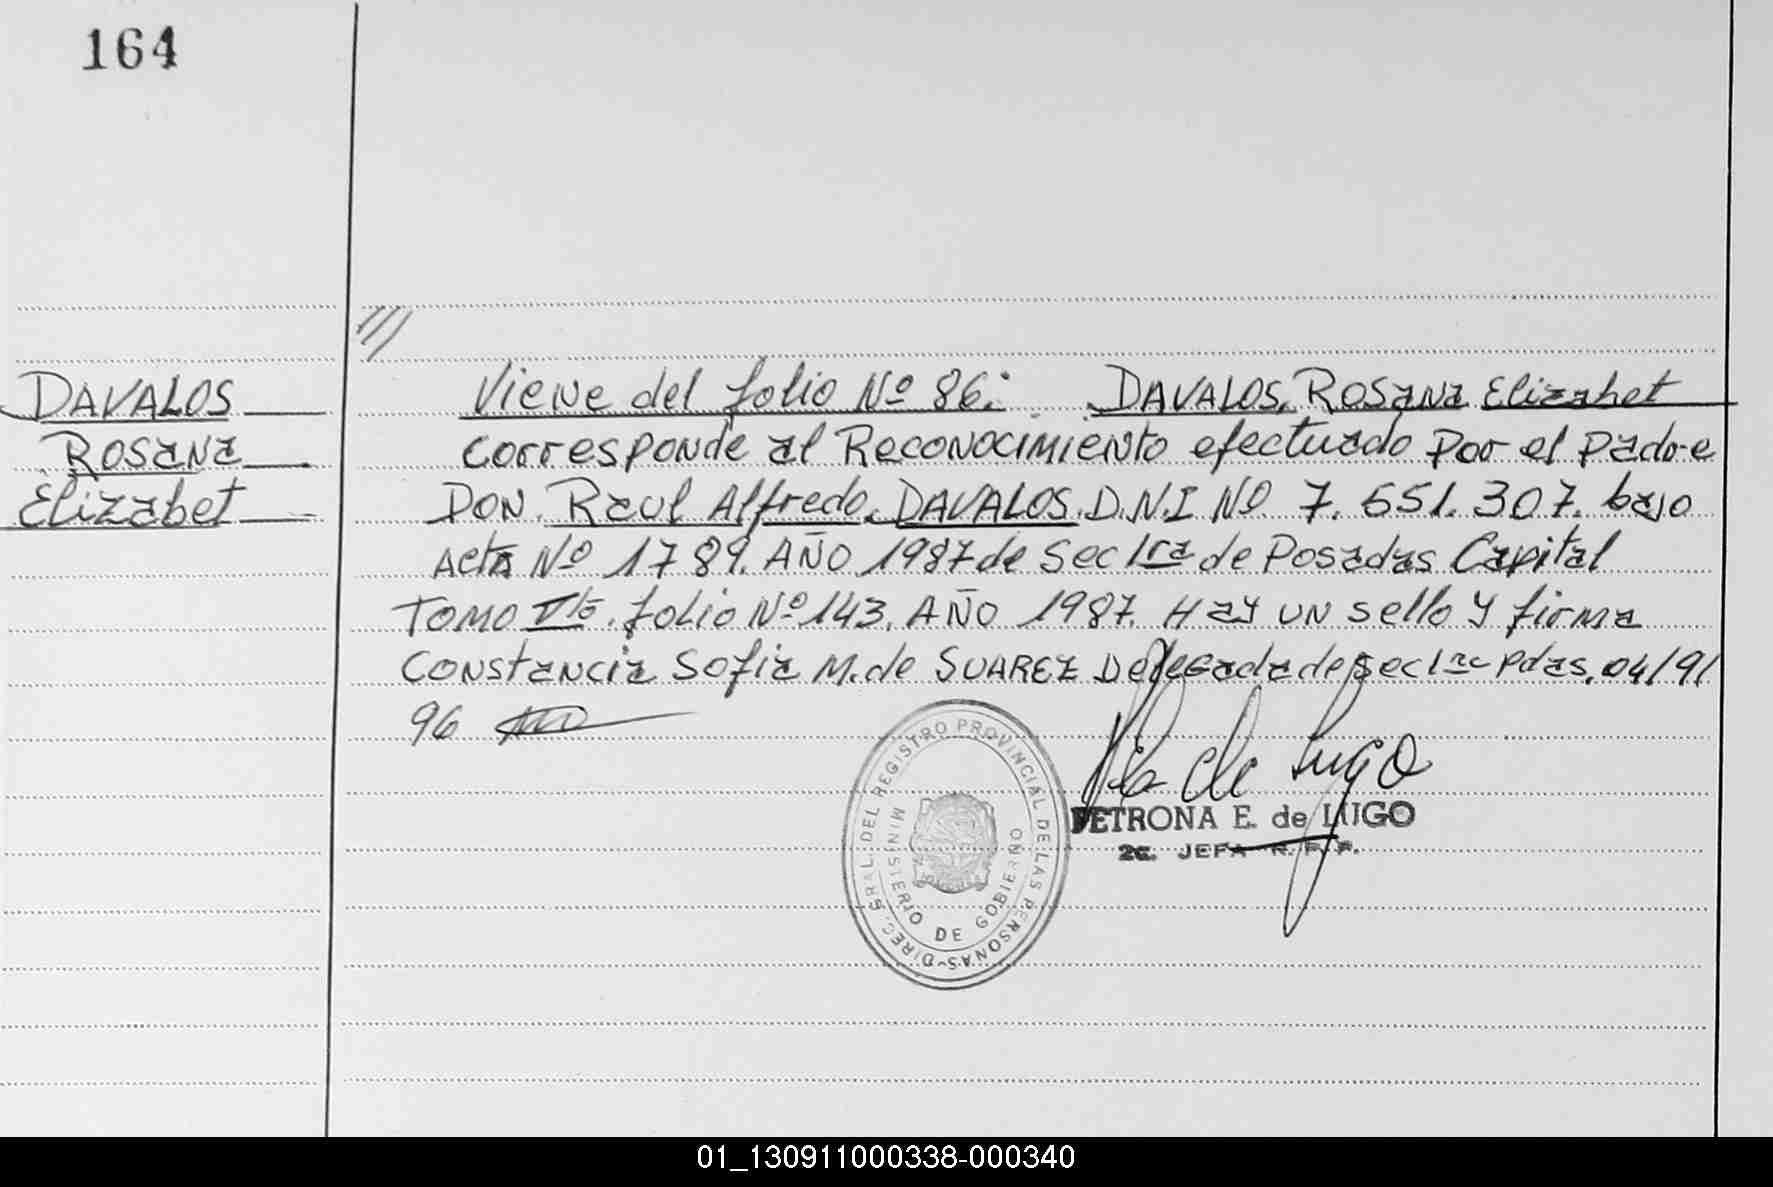 164
DAVALOS
ROSANA
Elizabet
Viene del folio Nº 86: DAVALOS, ROSANA Elizabet
corresponde al Reconocimiento efectuado por el padre
DON Raul Alfredo DAVALOS. D.N.I Nº 7.551.307. bajo
Acta Nº 1789. AÑO 1987 de Sec 1ra de Posadas Capital
TOMO Vto. folio Nº 143. AÑO 1987. Hay un sello y firma
Constancia Sofia M. de SUAREZ Delegada de Sec 1ra Pdas. 04/9/
96
de Lugo
PETRONA E. de LUGO
2a. JEFA R. P. P.
DIREC. GRAL. DEL REGISTRO PROVINCIAL DE LAS PERSONAS-
MINISTERIO DE GOBIERNO
01_130911000338-000340